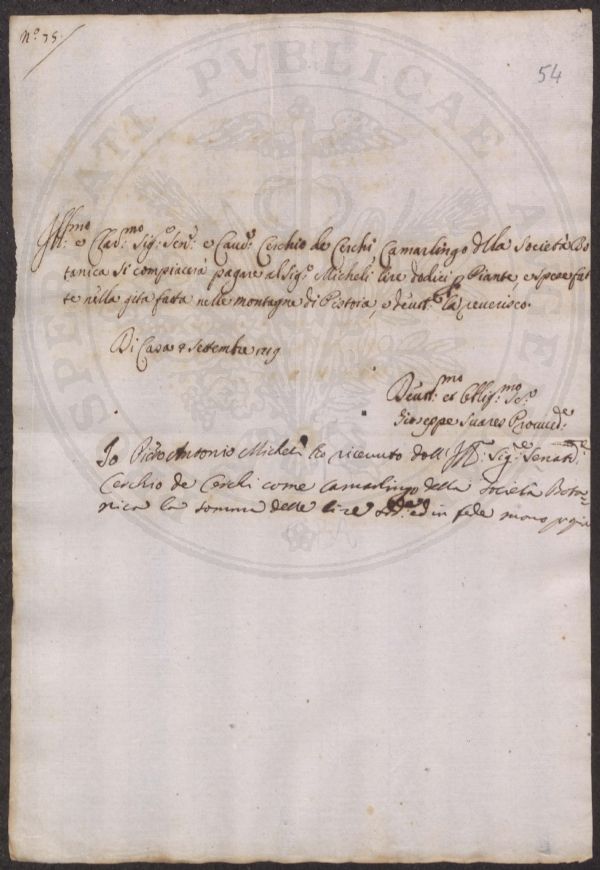 N.º 75.
54
Ill:mo e Clad:mo Sig:re Sen:e e Cav:e Cerchio de Cerchi Camarlingo della Società Bo
tanica si compiacerà pagare al Sig:e Micheli lire dodici p Piante, e spese fat
te nella gita fatta nelle montagne di Pistoia, e devt:e la reverisco.
Di Casa Settembre 1719
Devt:mo et Oblig:mo Se:
Giuseppe Suares Provved:e
Io Pietro Antonio Micheli ho ricevuto dall' Ill: Sig:re Senat:e
Cerchio de Cerchi come camarlingo della Società Bota-
nica la somma delle lire ed in fede mano ppia
SPERATI PVBLICAE